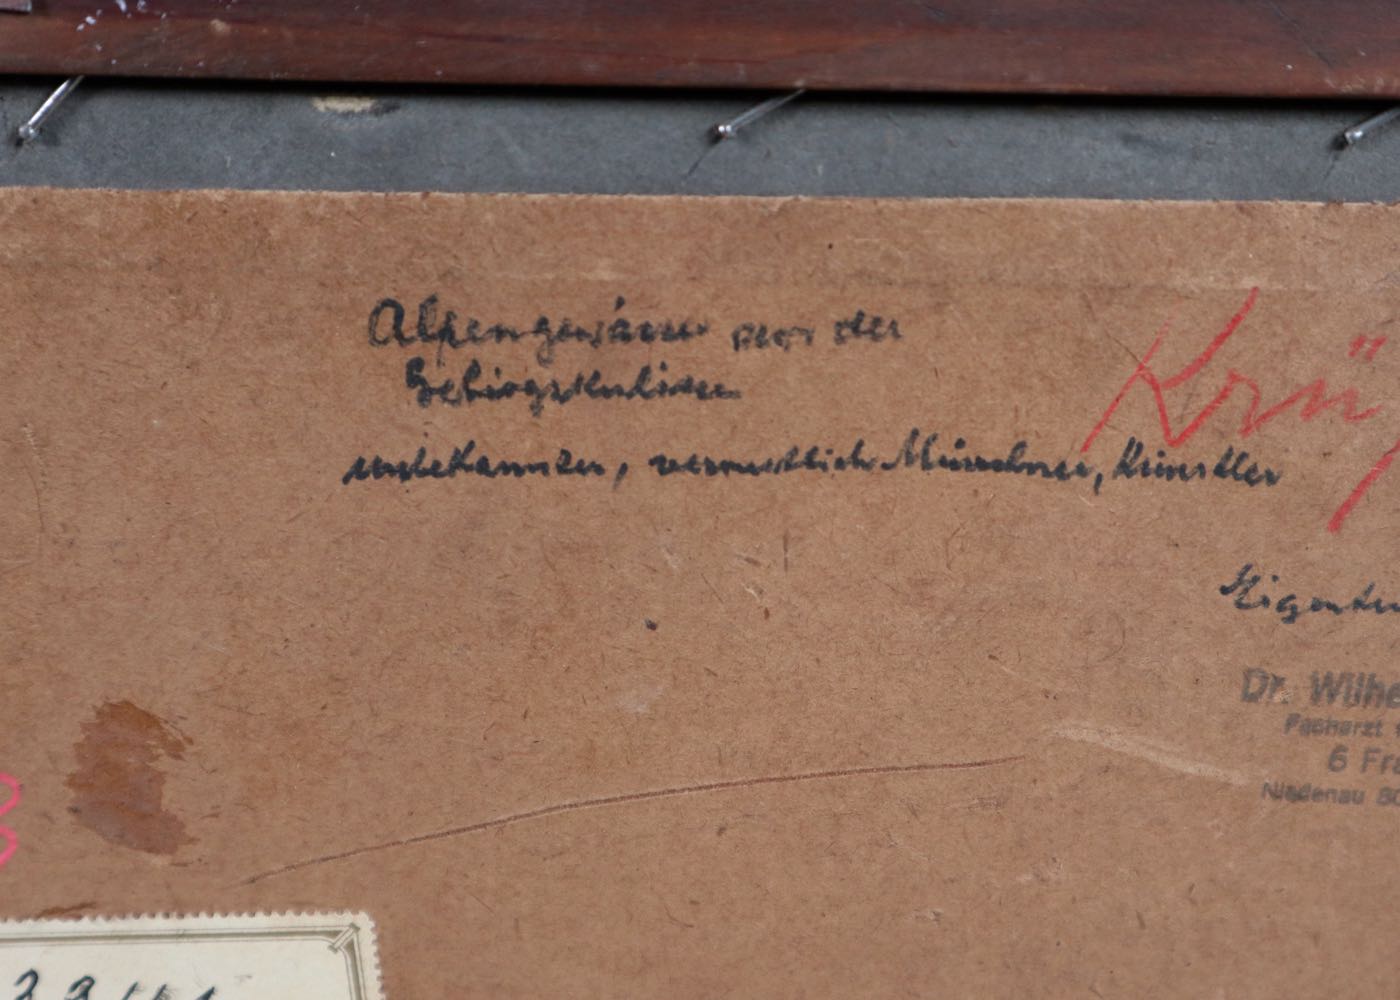 Alpengewässer vor der
Gebirgskulisse
unbekannter, vermutlich Münchner, Künstler
Krü
Eigentu
Dr. Wilhe
Facharzt
6 Fra
Niedenau 80